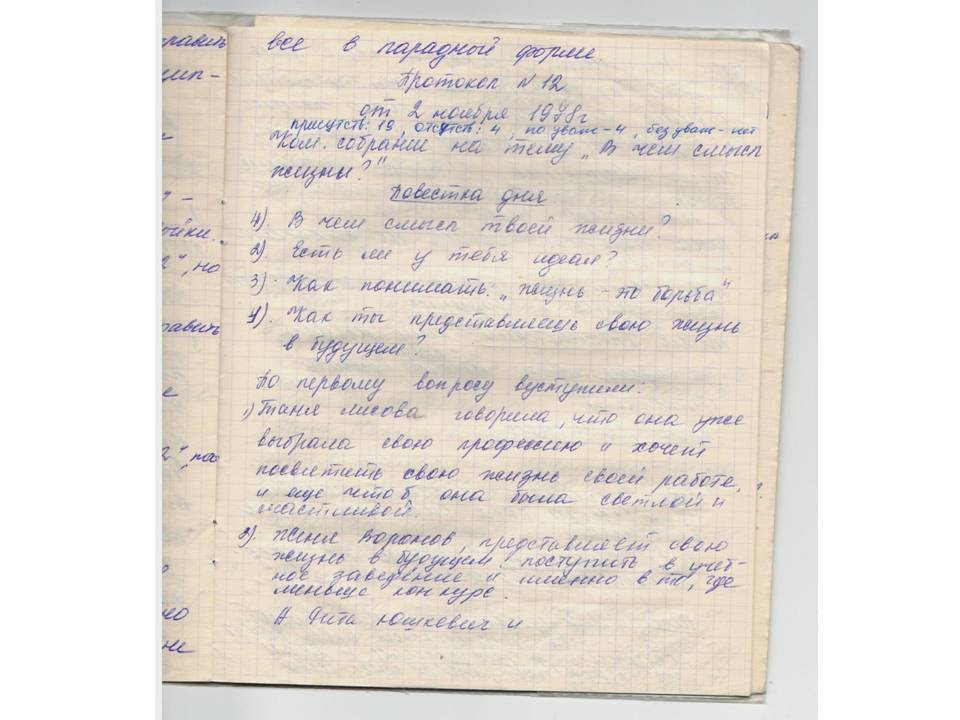 все в парадной форме.
Протокол N 12
от 2 ноября 1978г
присутств: 19, отсутств: 4, по уваж-4, без уваж-нет
Ком. собрание на тему „В чем смысл
жизни?"
Повестка дня
1). В чем смысл твоей жизни?
2). Есть ли у тебя идеал?
3). Как понимать: „жизнь - это борьба"
4). Как ты представляешь свою жизнь
в будущем?
По первому вопросу выступили:
1) Таня Лисова говорила, что она уже
выбрала свою профессию и хочет
посвятить свою жизнь своей работе,
и еще чтоб она была светлой и
счастливой.
2). Женя Воронов, представляет свою
жизнь в будущем: поступить в учеб-
ное заведение и именно в то, где
меньше конкурс.
А Рита Юшкевич и
равить
но
равить
е
но
ни